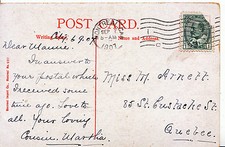 POST CARD.
Writing
Name and Address
SEP 7
1907
Dear Mamie.
In answer to
your postal which
I received some
time ago. Love to
all. Your loving
Cousin, Martha
Miss M. Arnett.
85 St. Eustache St.
Quebec.